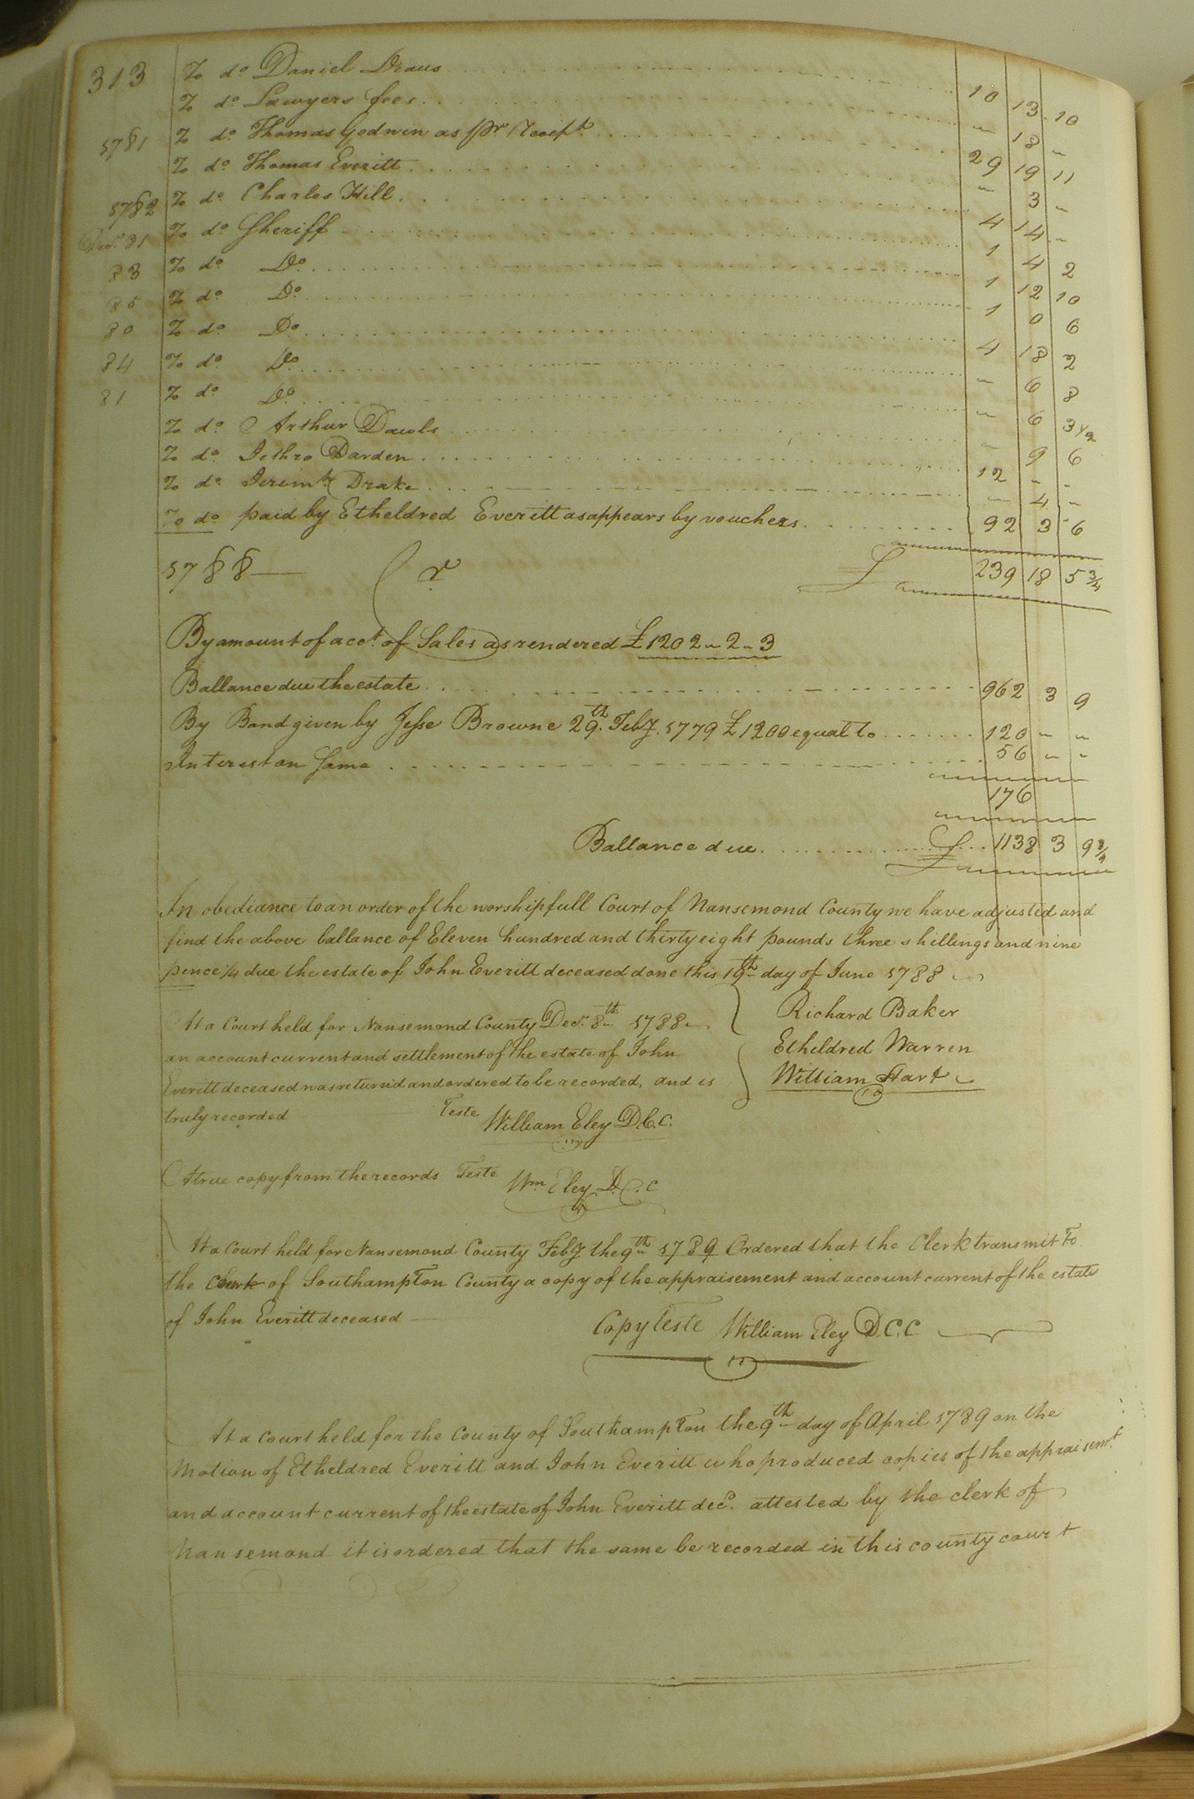 313 To do Daniel Draus 10 13 10
To do Lawyers fees - 18 -
1781 To do Thomas Godwin as pr Receipt 29 19 11
To do Thomas Everitt - 3 -
1782 To do Charles Hill 4 14 -
Decr 81 To do Sheriff 1 4 2
83 To do Do 1 12 10
85 To do Do 1 0 6
80 To do Do 4 18 2
84 To do Do - 6 8
81 To do Do - 6 3 1/2
To do Arthur Dauls - 9 6
To do Jethro Darden 12 - -
To do Jeremy Drake - 4 -
To do paid by Etheldred Everitt as appears by vouchers 92 3 6
1788 Cr £ 239 18 5 3/4
By amount of acct of Sales as rendered £1202 - 2 - 3
Ballance due the estate 962 3 9
By Bond given by Jesse Browne 29th Feby 1779 £1200 equal to 120 - -
Interest on same 56 - -
176
Ballance due £ 1138 3 9 1/4
In obediance to an order of the worshipfull Court of Nansemond County we have adjusted and
find the above ballance of Eleven hundred and thirty eight pounds three shillings and nine
pence 1/4 due the estate of John Everitt deceased done this 19th day of June 1788
Richard Baker
Etheldred Warren
William Hart
At a Court held for Nansemond County Decr 8th 1788
an account current and settlement of the estate of John
Everitt deceased was returnd and ordered to be recorded, and is
truly recorded Teste William Eley D.C.C.
A true copy from the records Teste Wm Eley D.C.C
At a Court held for Nansemond County Feby the 9th 1789 Ordered that the Clerk transmit to
the Clerk of Southampton County a copy of the appraisement and account current of the estate
of John Everitt deceased
Copy Teste William Eley D.C.C
At a court held for the county of Southampton the 9th day of April 1789 on the
Motion of Etheldred Everitt and John Everitt who produced copies of the appraisemt
and account current of the estate of John Everitt decd. attested by the clerk of
Nansemond it is ordered that the same be recorded in this county court